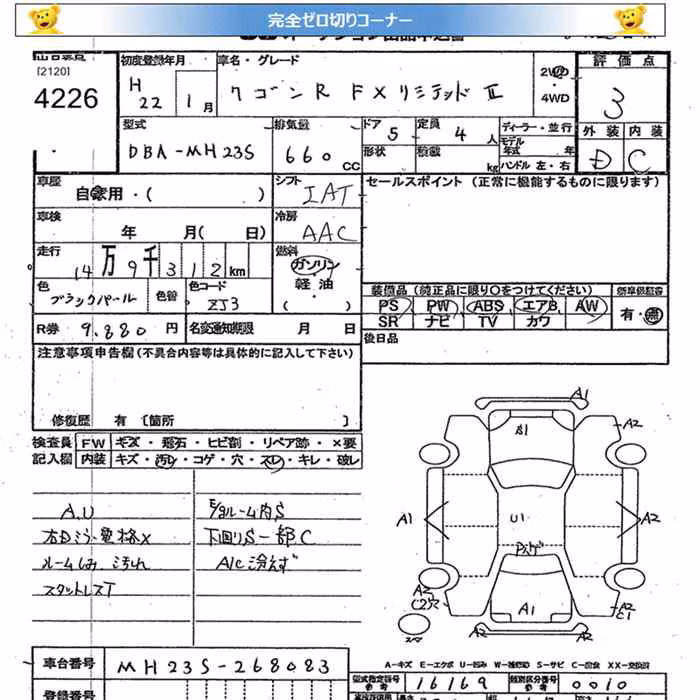 完全ゼロ切りコーナー
[2120]
4226
初度登録年月
H 22 1月
車名・グレード
ワゴンR FXリミテッドⅡ
2WD
4WD
評価点
3
外装 内装
D C
型式
DBA-MH23S
排気量
660 CC
ドア 5
形状
定員 4 人
積載 kg
ディーラー・並行
モデル年式 年
ハンドル 左・右
車歴
自家用・( )
シフト
IAT
セールスポイント(正常に機能するものに限ります)
車検
年 月( 日)
冷房
AAC
走行
14万9千312km
燃料
ガソリン
軽油・
( )
色
ブラックパール
色替
色コード
ZJ3
装備品(純正品に限り○をつけてください)
PS PW ABS エアB AW
SR ナビ TV カワ
新車保証書
有・無
R券 9.880 円
名変通知期限 月 日
後日品
注意事項申告欄(不具合内容等は具体的に記入して下さい)
修復歴 有 [箇所 ]
検査員 FW キズ・飛石・ヒビ割・リペア跡・×要
記入欄 内装 キズ・汚レ・コゲ・穴・スレ・キレ・破レ
A.U
右Dミラー電格×
ルームしみ、汚れ
スタットレスT
下回りS一部C
A/C冷えず
A1
A2
B1
A1
U1
A2
A2
C2穴
A1
A2
C1
スマ
A2
A2
A-キズ E-エクボ U-凹み W-補修跡 S-サビ C-腐食 XX-交換済
車台番号
MH23S-268083
型式指定番号
参考
16169
類別区分番号
参考
0010
登録番号